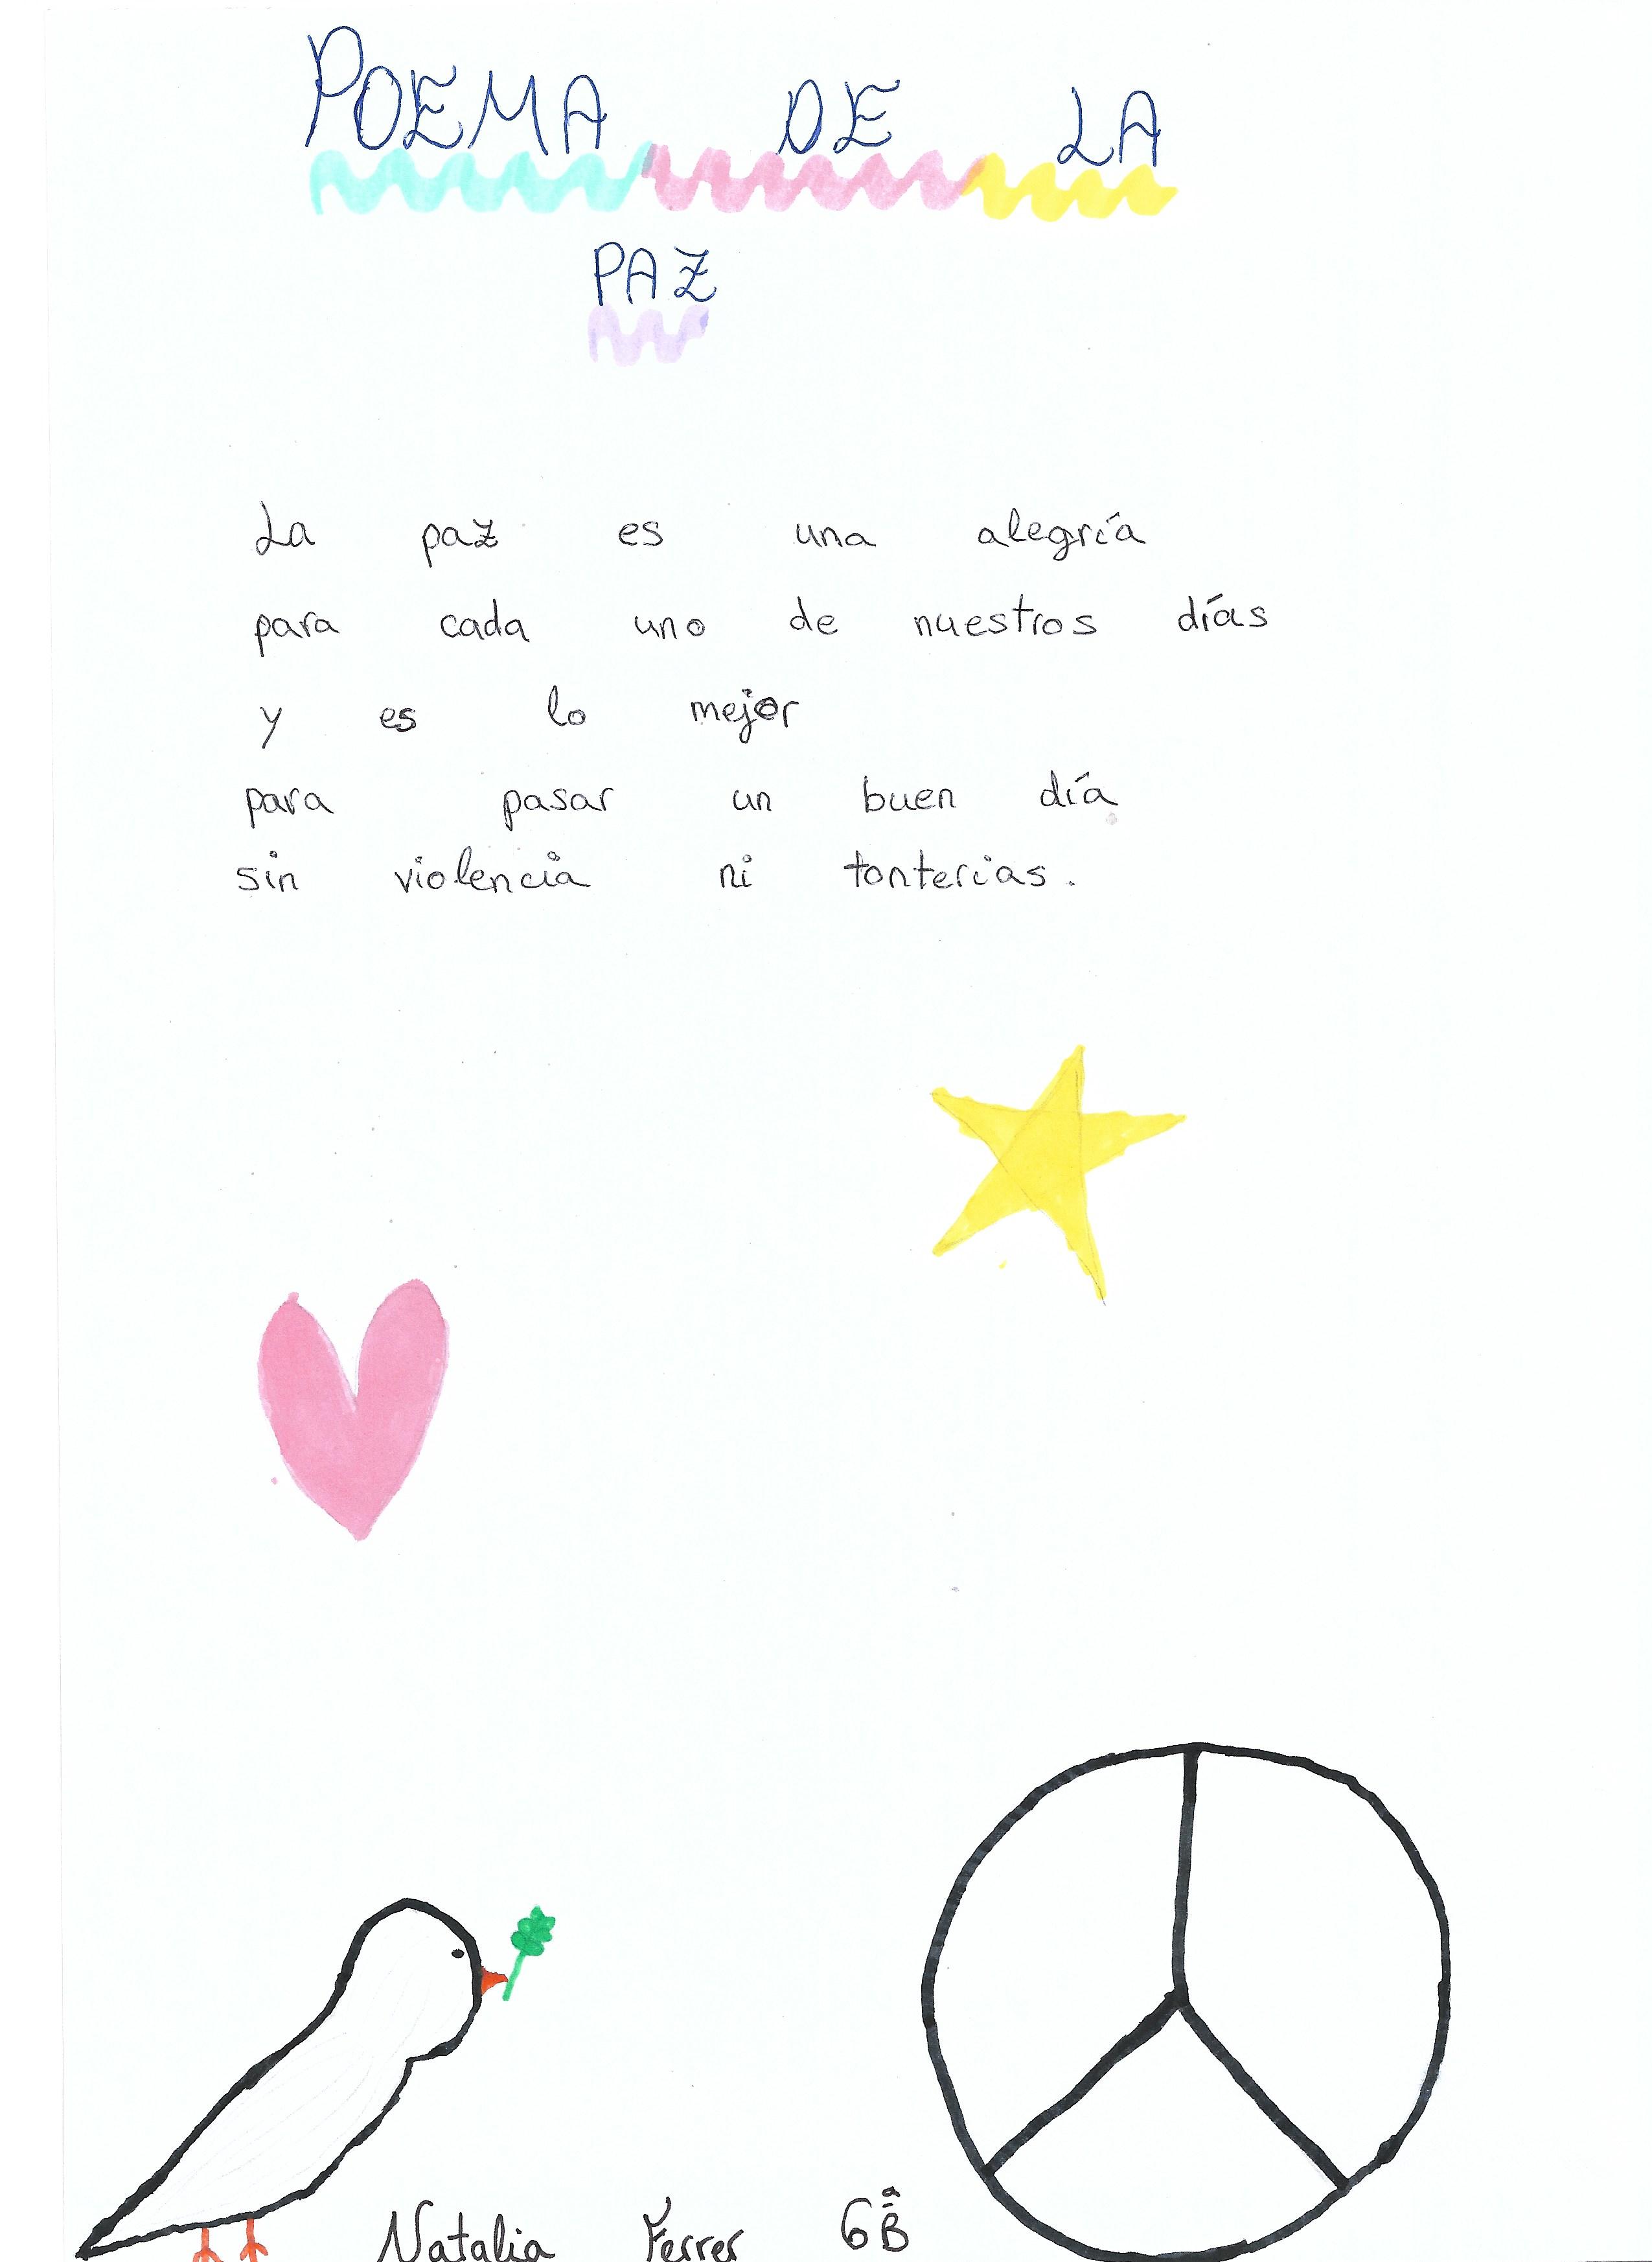 POEMA DE LA
PAZ
La paz es una alegría
para cada uno de nuestros días
y es lo mejor
para pasar un buen día
sin violencia ni tonterias.
Natalia Ferrer 6ªB